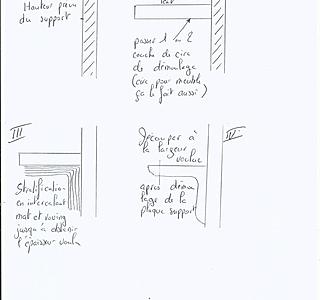 Hauteur prévu
du support
passer 1 ou 2
couche de cire
de démoulage
(cire pour meuble
ça le fait aussi)
III
Stratification
en intercalant
mat et roving
jusqu'à obtenir
l'épaisseur voulu
IV
Découper à
la largeur
voulue
après démou
lage de la
plaque support